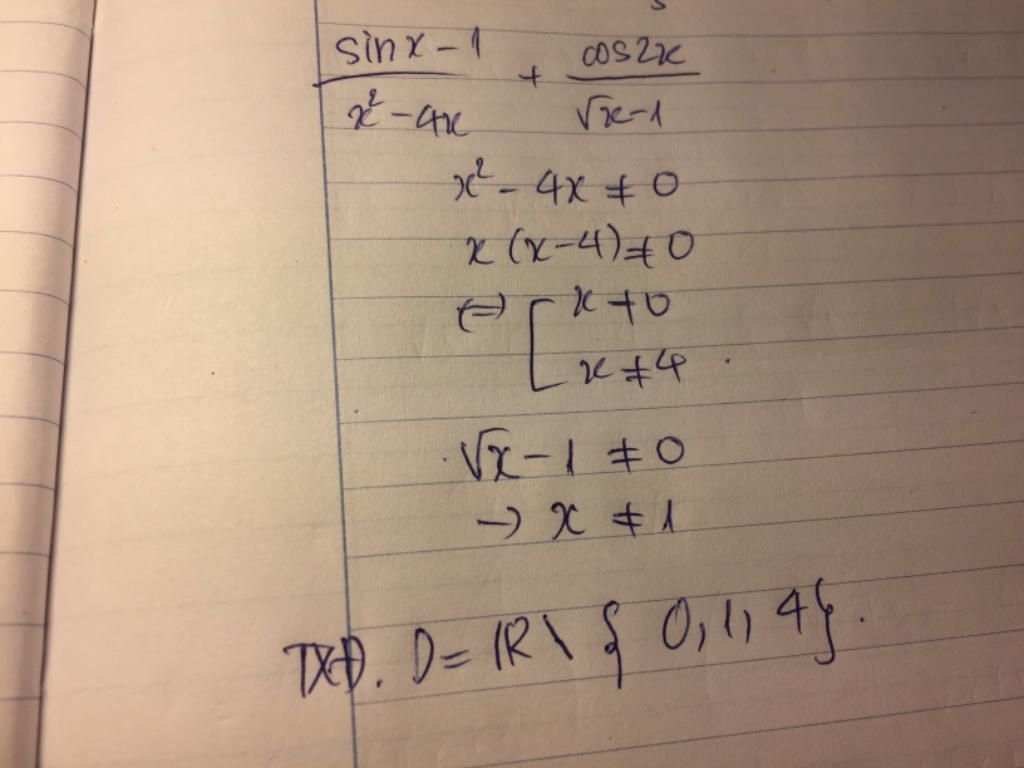 sinx - 1 / x² - 4x + cos2x / √x - 1
x² - 4x ≠ 0
x (x - 4) ≠ 0
⇔ [ x ≠ 0
x ≠ 4 .
√x - 1 ≠ 0
→ x ≠ 1
TXĐ. D = ℝ \ { 0, 1, 4 }.